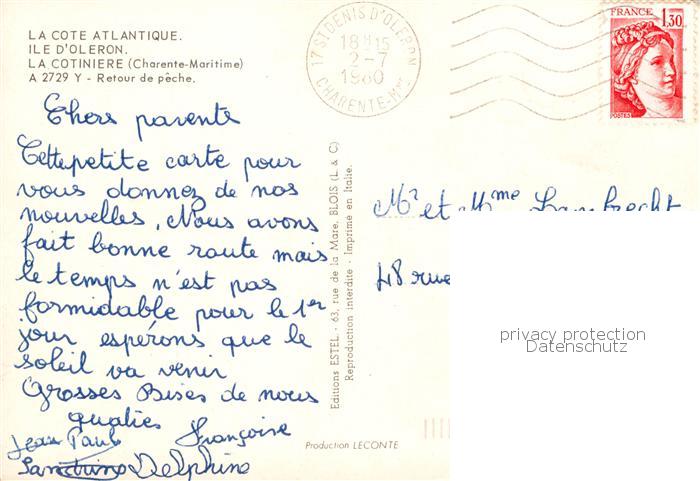 LA COTE ATLANTIQUE.
ILE D'OLERON.
LA COTINIERE (Charente-Maritime)
A 2729 Y - Retour de pêche.
17 ST DENIS D'OLERON
18H15
2-7
1980
CHARENTE-Mme
FRANCE
1,30
POSTES
Chers parents
Cette petite carte pour
vous donnez de nos
nouvelles. Nous avons
fait bonne route mais
le temps n'est pas
formidable pour le 1er
jour espérons que le
soleil va venir
Grosses Bises de nous
quatres
Jean Paul Françoise
Sandrine Delphine
Editions ESTEL - 63, rue de la Mare, BLOIS (L. & C)
Reproduction interdite - Imprimé en Italie.
Mr et Mme Lambrecht
48 rue
privacy protection
Datenschutz
Production LECONTE